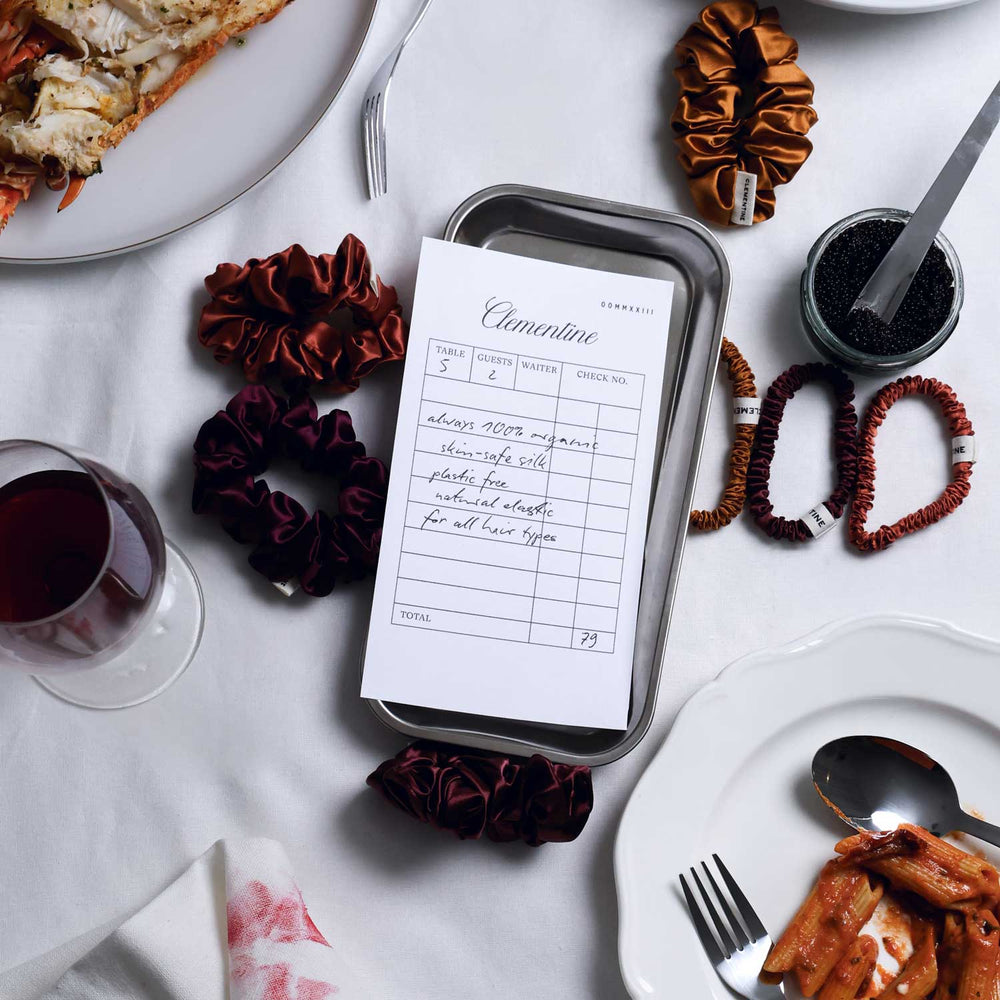 CLEMENTINE
OOMMXXIII
Clementine
TABLE GUESTS WAITER CHECK NO.
5 2
always 100% organic
skin-safe silk
plastic free
natural elastic
for all hair types
TOTAL
79
CLEMENTINE
TINE
CLEMENTINE